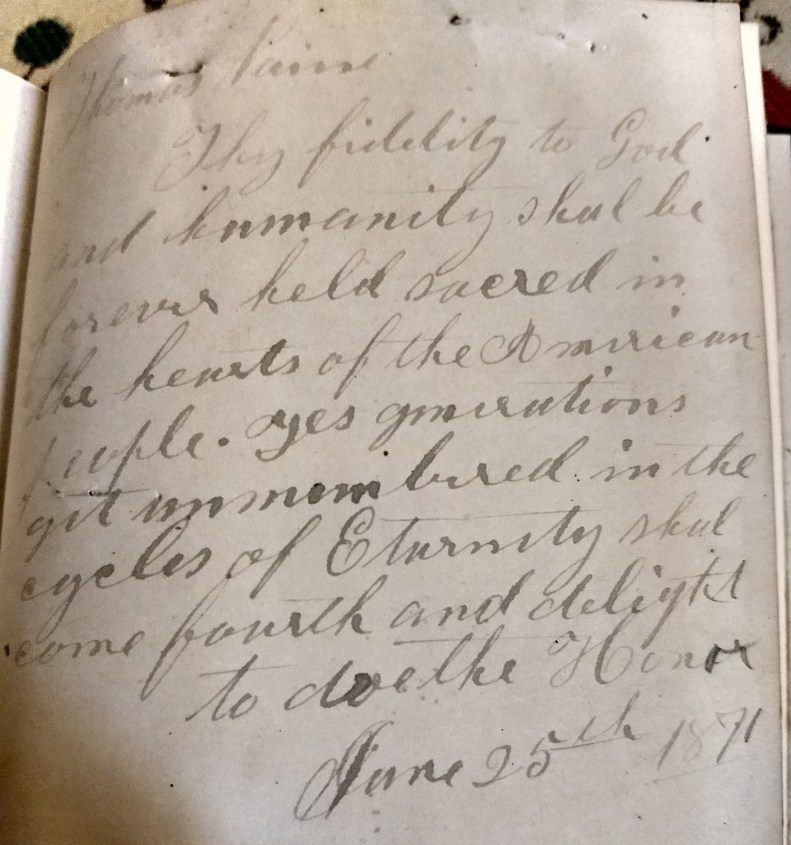 Thomas Paine
Thy fidelity to God
and humanity shal be
forever held sacred in
the hearts of the American
people. Yes generations
yit unnumbured in the
cycles of Eturnity shal
come fourth and delight
to doe the Honor
June 25th 1871